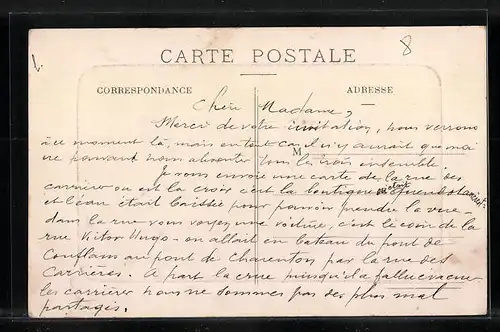 8
CARTE POSTALE
CORRESPONDANCE
ADRESSE
Chère Madame,
Merci de votre invitation, nous verrons
à ce moment là, mais en tout cas il n'y aurait que moi
M
ne pouvant nous absenter tous les trois ensemble.
Je vous envoie une carte de la rue des
carrières ou est la croix c'est la boutique
et l'eau était baissée pour pouvoir prendre la vue -
dans la rue vous voyez une voiture, c'est le coin de la
rue Victor Hugo - on allait en bateau du pont de
Conflans au pont de Charenton par la rue des
Carrières. A part la crue puisqu'il a fallu évacuer
les carrières nous ne sommes pas des plus mal
partagés.